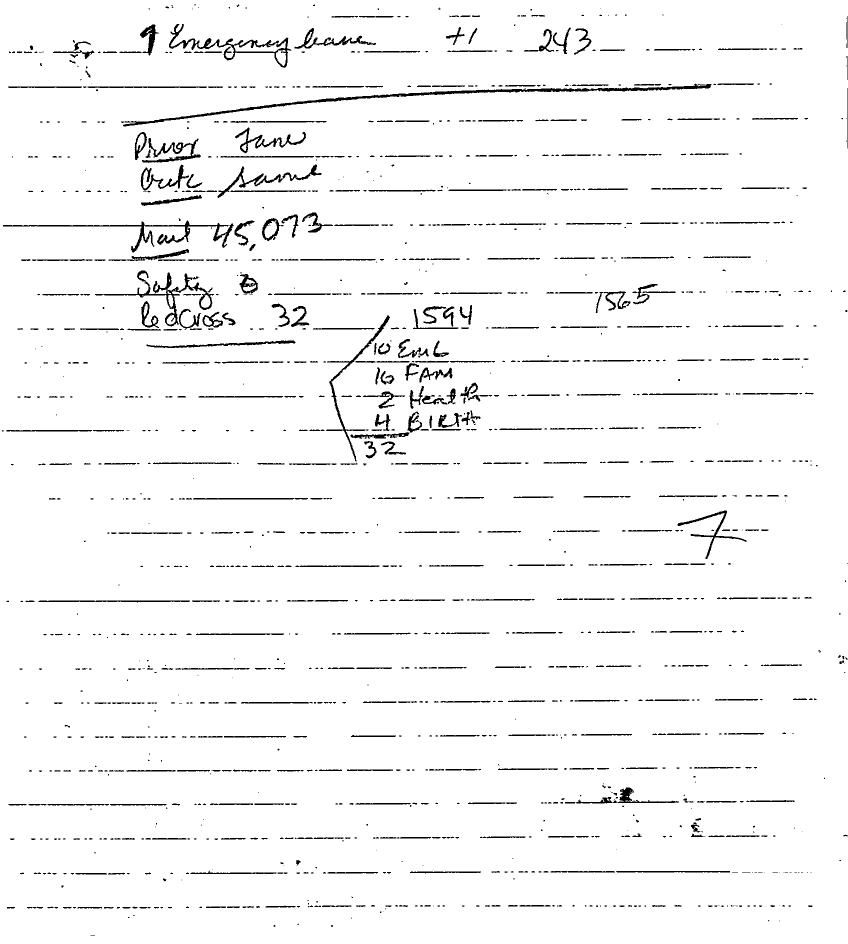 1 Emergency leave +1 243
Prior Jane
same
Mail 45,073
Safety 0
Red Cross 32 1594 1565
10 Emb
16 FAM
2 Health
4 BIRTH
32
7